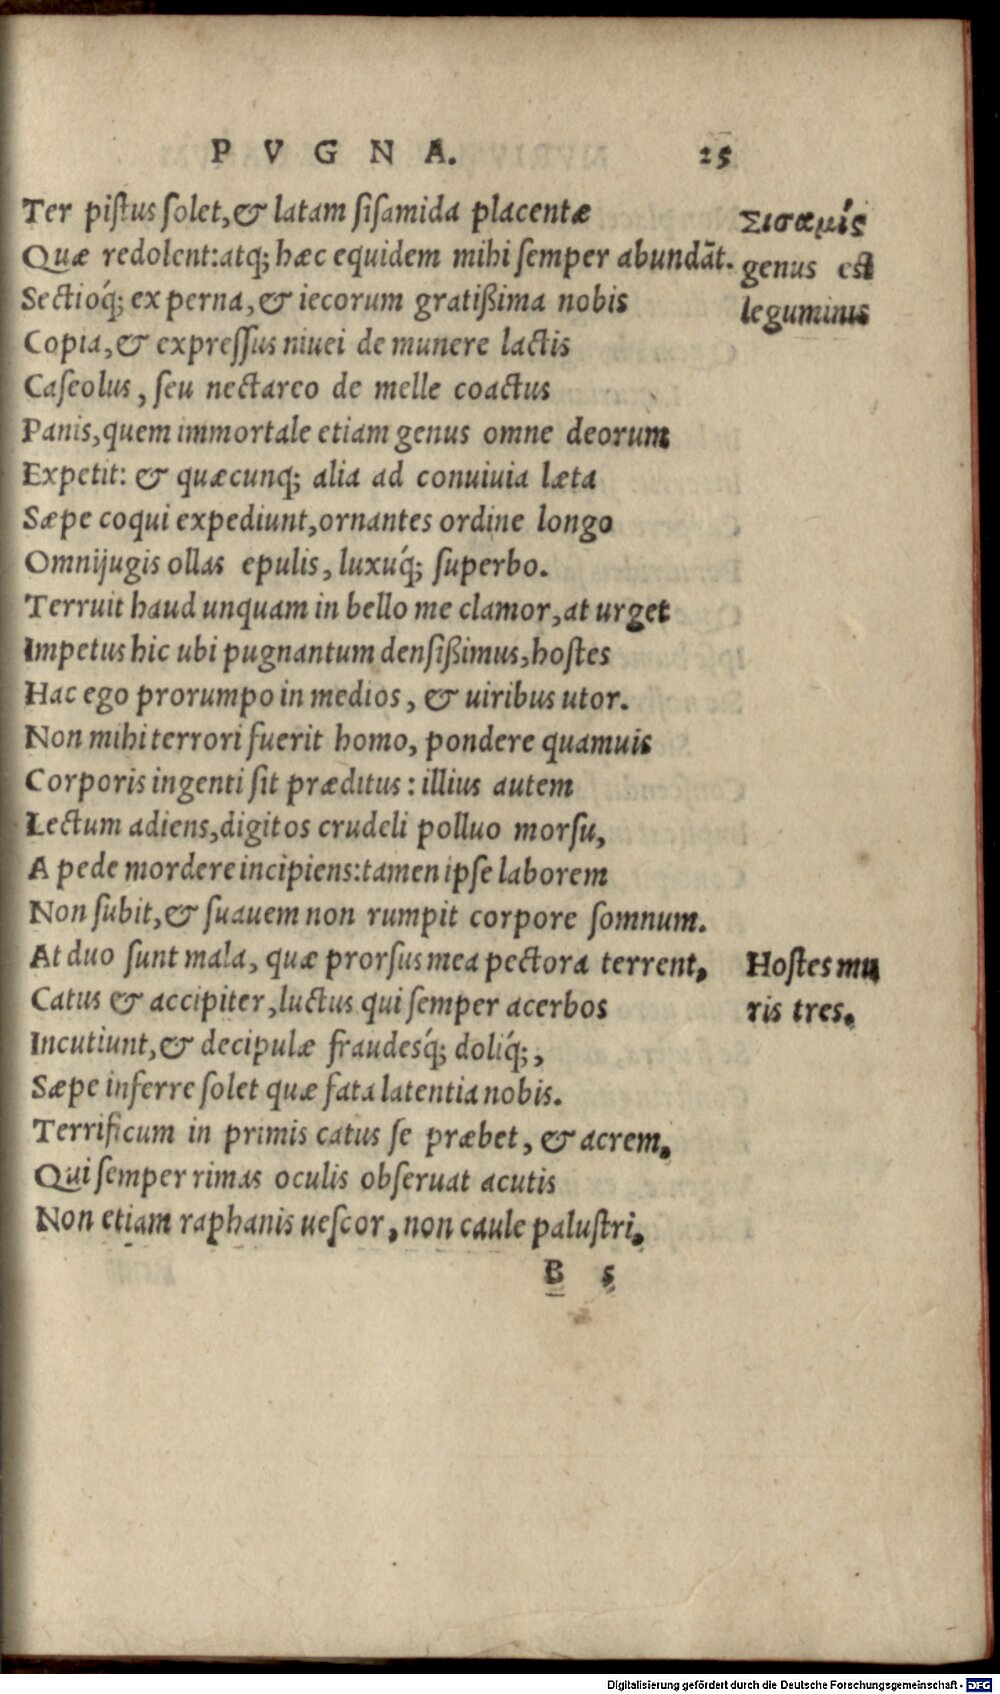 PVGNA. 25
Ter pistus solet, & latam sisamida placentæ
Quæ redolent: atq; hæc equidem mihi semper abundāt.
Sectioq́; ex perna, & iecorum gratißima nobis
Copia, & expressus niuei de munere lactis
Caseolus, seu nectareo de melle coactus
Panis, quem immortale etiam genus omne deorum
Expetit: & quæcunq; alia ad conuiuia læta
Sæpe coqui expediunt, ornantes ordine longo
Omnijugis ollas epulis, luxuq́; superbo.
Terruit haud unquam in bello me clamor, at urget
Impetus hic ubi pugnantum densißimus, hostes
Hac ego prorumpo in medios, & uiribus utor.
Non mihi terrori fuerit homo, pondere quamuis
Corporis ingenti sit præditus: illius autem
Lectum adiens, digitos crudeli polluo morsu,
A pede mordere incipiens: tamen ipse laborem
Non subit, & suauem non rumpit corpore somnum.
At duo sunt mala, quæ prorsus mea pectora terrent,
Catus & accipiter, luctus qui semper acerbos
Incutiunt, & decipulæ fraudesq́; doliq́;,
Sæpe inferre solet quæ fata latentia nobis.
Terrificum in primis catus se præbet, & acrem,
Qui semper rimas oculis obseruat acutis
Non etiam raphanis uescor, non caule palustri,
B 5
Σισαμίς
genus est
leguminis
Hostes mu
ris tres.
Digitalisierung gefördert durch die Deutsche Forschungsgemeinschaft - DFG